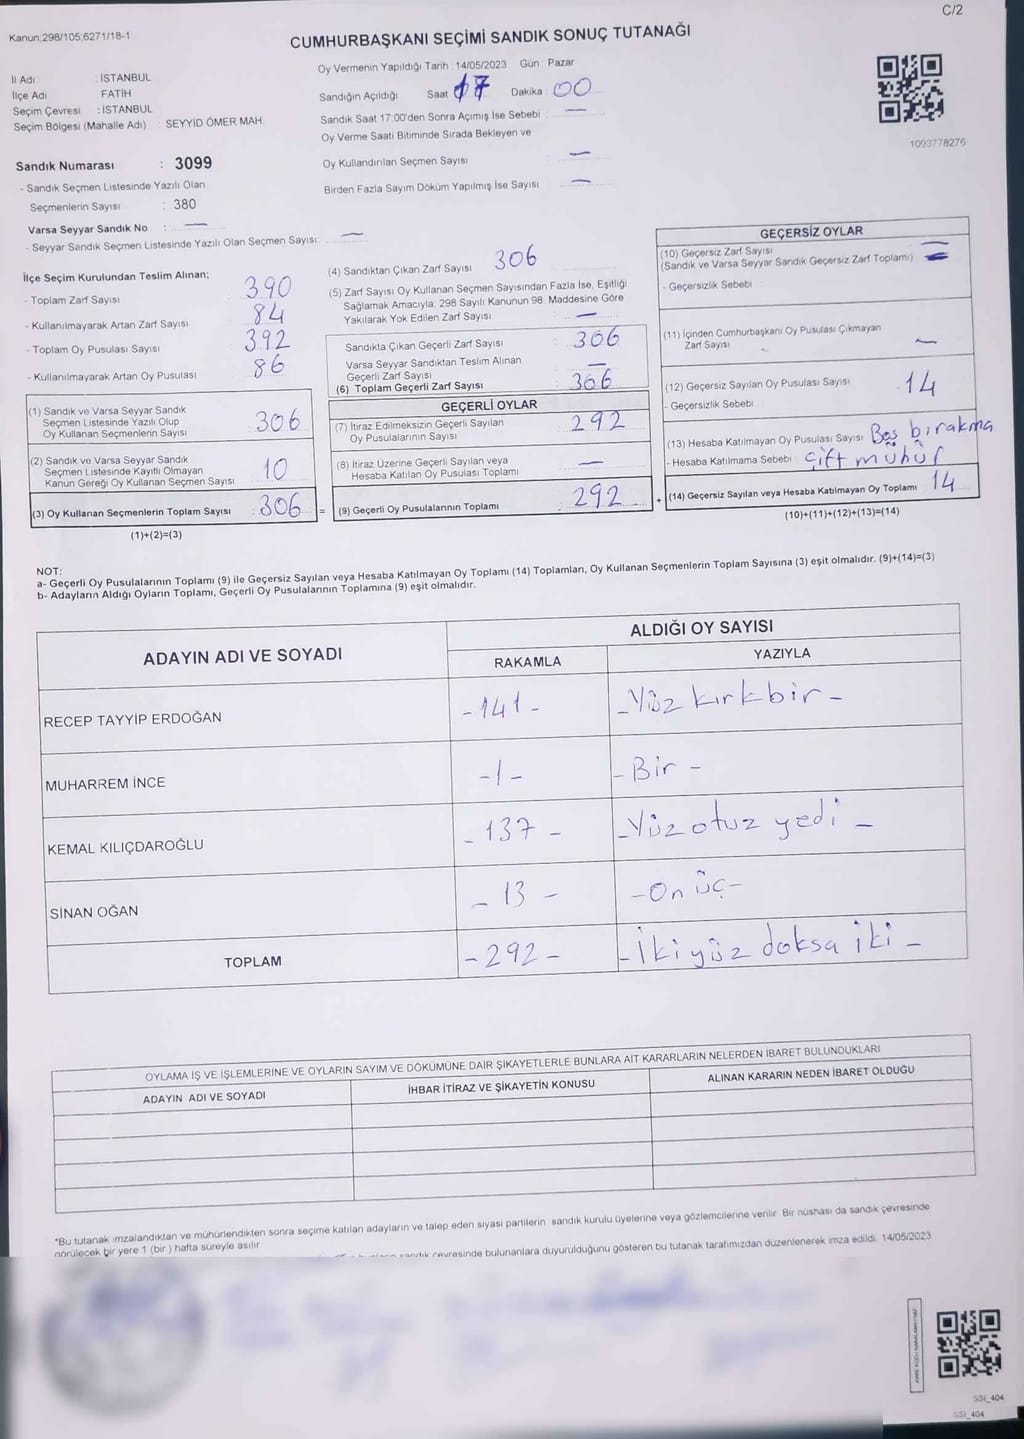 C/2
Kanun;298/105;6271/18-1
CUMHURBAŞKANI SEÇİMİ SANDIK SONUÇ TUTANAĞI
İl Adı : İSTANBUL
İlçe Adı FATİH
Seçim Çevresi : İSTANBUL
Seçim Bölgesi (Mahalle Adı) : SEYYİD ÖMER MAH.
Oy Vermenin Yapıldığı Tarih : 14/05/2023 Gün : Pazar
Sandığın Açıldığı Saat 17 Dakika 00
Sandık Saat 17:00'den Sonra Açımış İse Sebebi : —
Oy Verme Saati Bitiminde Sırada Bekleyen ve
Oy Kullandırılan Seçmen Sayısı —
Birden Fazla Sayım Döküm Yapılmış İse Sayısı —
1093778276
Sandık Numarası : 3099
- Sandık Seçmen Listesinde Yazılı Olan
Seçmenlerin Sayısı : 380
Varsa Seyyar Sandık No : —
- Seyyar Sandık Seçmen Listesinde Yazılı Olan Seçmen Sayısı: —
İlçe Seçim Kurulundan Teslim Alınan;
- Toplam Zarf Sayısı 390
- Kullanılmayarak Artan Zarf Sayısı 84
- Toplam Oy Pusulası Sayısı 392
- Kullanılmayarak Artan Oy Pusulası 86
(1) Sandık ve Varsa Seyyar Sandık
Seçmen Listesinde Yazılı Olup
Oy Kullanan Seçmenlerin Sayısı 306
(2) Sandık ve Varsa Seyyar Sandık
Seçmen Listesinde Kayıtlı Olmayan
Kanun Gereği Oy Kullanan Seçmen Sayısı 10
(3) Oy Kullanan Seçmenlerin Toplam Sayısı : 306 =
(1)+(2)=(3)
(4) Sandıktan Çıkan Zarf Sayısı 306
(5) Zarf Sayısı Oy Kullanan Seçmen Sayısından Fazla İse, Eşitliği
Sağlamak Amacıyla; 298 Sayılı Kanunun 98. Maddesine Göre
Yakılarak Yok Edilen Zarf Sayısı —
Sandıkta Çıkan Geçerli Zarf Sayısı : 306
Varsa Seyyar Sandıktan Teslim Alınan
Geçerli Zarf Sayısı —
(6) Toplam Geçerli Zarf Sayısı 306
GEÇERLİ OYLAR
(7) İtiraz Edilmeksizin Geçerli Sayılan
Oy Pusulalarının Sayısı : 292
(8) İtiraz Üzerine Geçerli Sayılan veya
Hesaba Katılan Oy Pusulası Toplamı : —
(9) Geçerli Oy Pusulalarının Toplamı : 292 +
GEÇERSİZ OYLAR
(10) Geçersiz Zarf Sayısı
(Sandık ve Varsa Seyyar Sandık Geçersiz Zarf Toplamı) —
- Geçersizlik Sebebi :
(11) İçinden Cumhurbaşkanı Oy Pusulası Çıkmayan
Zarf Sayısı —
(12) Geçersiz Sayılan Oy Pusulası Sayısı : 14
- Geçersizlik Sebebi
(13) Hesaba Katılmayan Oy Pusulası Sayısı Boş bırakma
- Hesaba Katılmama Sebebi : çift mühür
(14) Geçersiz Sayılan veya Hesaba Katılmayan Oy Toplamı 14
(10)+(11)+(12)+(13)=(14)
NOT:
a- Geçerli Oy Pusulalarının Toplamı (9) ile Geçersiz Sayılan veya Hesaba Katılmayan Oy Toplamı (14) Toplamları, Oy Kullanan Seçmenlerin Toplam Sayısına (3) eşit olmalıdır. (9)+(14)=(3)
b- Adayların Aldığı Oyların Toplamı, Geçerli Oy Pusulalarının Toplamına (9) eşit olmalıdır.
ADAYIN ADI VE SOYADI
ALDIĞI OY SAYISI
RAKAMLA YAZIYLA
RECEP TAYYİP ERDOĞAN -141- -Yüz kırkbir-
MUHARREM İNCE -1- -Bir-
KEMAL KILIÇDAROĞLU -137- -Yüz otuz yedi-
SİNAN OĞAN -13- -On üç-
TOPLAM -292- -İki yüz doksa iki-
OYLAMA İŞ VE İŞLEMLERİNE VE OYLARIN SAYIM VE DÖKÜMÜNE DAİR ŞİKAYETLERLE BUNLARA AİT KARARLARIN NELERDEN İBARET BULUNDUKLARI
ADAYIN ADI VE SOYADI İHBAR İTİRAZ VE ŞİKAYETİN KONUSU ALINAN KARARIN NEDEN İBARET OLDUĞU
*Bu tutanak imzalandıktan ve mühürlendikten sonra seçime katılan adayların ve talep eden siyasi partilerin sandık kurulu üyelerine veya gözlemcilerine verilir. Bir nüshası da sandık çevresinde
görülecek bir yere 1 (bir) hafta süreyle asılır.
sandık çevresinde bulunanlara duyurulduğunu gösteren bu tutanak tarafımızdan düzenlenerek imza edildi. 14/05/2023
SSI_404
SSI_404